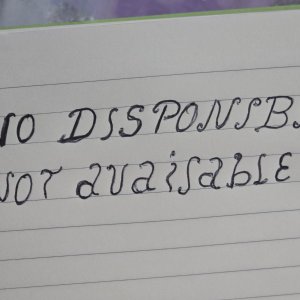 NO DISPONIB
NOT avaiLabLE